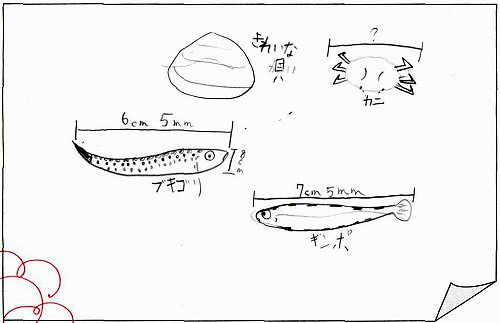 きれいな
貝
?
カニ
6cm 5mm
ブキゴリ
7cm 5mm
ギンポ